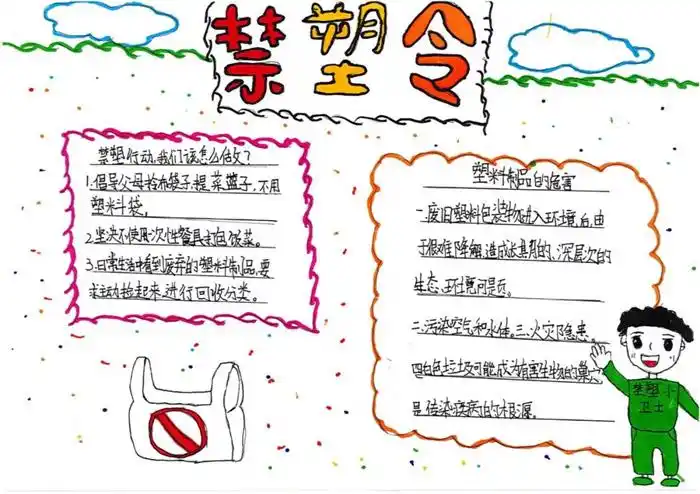 禁塑令
禁塑行动,我们该怎么做?
1.倡导父母拎布袋子,提菜篮子,不用
塑料袋。
2.坚决不使用次性餐具打包饭菜。
3.日常生活中看到废弃的塑料制品,要
求主动捡起来,进行回收分类。
塑料制品的危害
一.废旧塑料包装物进入环境后,由
于很难降解,造成长期的、深层次的
生态、环境问题。
二.污染空气和水体。三.火灾隐患。
四白色垃圾可能成为有害生物的巢穴
是传染疾病的根源。
禁塑小
卫士